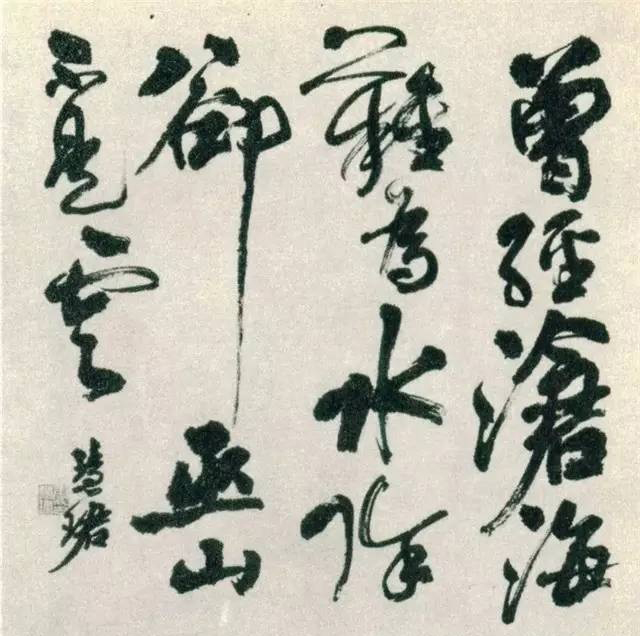 曾經滄海
難為水除
卻巫山
不是雲